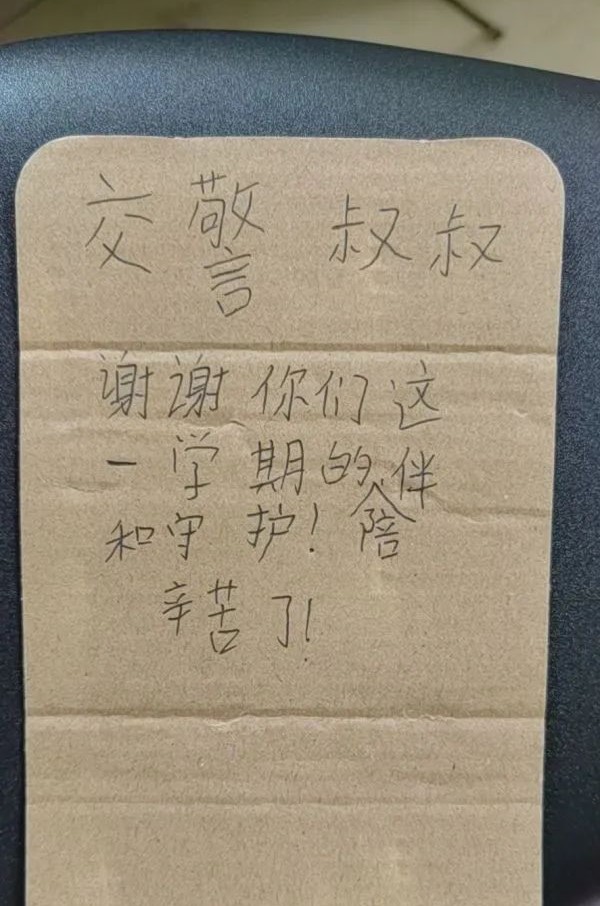 交警叔叔
谢谢你们这
一学期的陪伴
和守护！
辛苦了！